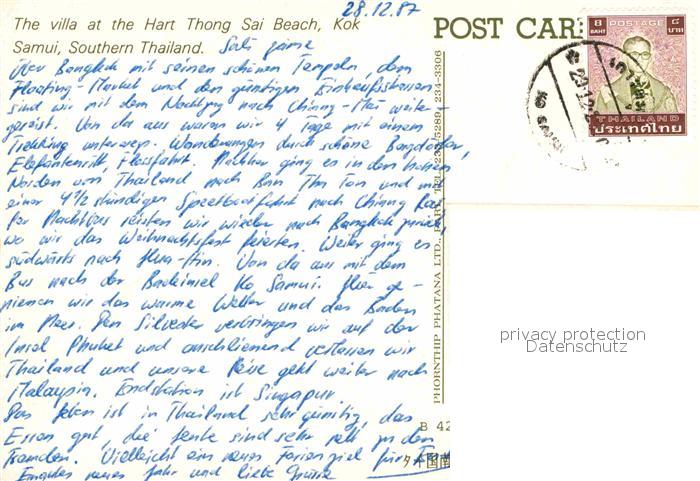 28.12.87
The villa at the Hart Thong Sai Beach, Kok
Samui, Southern Thailand.
POST CAR
Sali zäme
Über Bangkok mit seinen schönen Tempeln, dem
Floating-Market und den günstigen Einkaufsstrassen
sind wir mit dem Nachtzug nach Chiang-Mai weiter-
gereist. Von da aus waren wir 4 Tage mit einem
Trekking unterwegs. Wanderungen durch schöne Bergdörfer,
Elefantenritt, Flossfahrt. Nachher ging es in den hohen
Norden von Thailand nach Ban Tha Ton und mit
einer 4½ stündigen Speetbootfahrt nach Chiang Rai
Per Nachtbus reisten wir wieder nach Bangkok zurück,
wo wir das Weihnachtsfest feierten. Weiter ging es
südwärts nach Hua-Hin. Von da aus mit dem
Bus nach der Badeinsel Ko Samui. Hier ge-
niessen wir das warme Wetter und das Baden
im Meer. Den Silvester verbringen wir auf der
Insel Phuket und anschliessend verlassen wir
Thailand und unsere Reise geht weiter nach
Malaysia. Endstation ist Singapur.
Das Leben ist in Thailand sehr günstig, das
Essen gut, die Leute sind sehr nett zu den
Fremden. Vielleicht ein neues Ferienziel für
neues Jahr und liebe Grüsse
PHORNTHIP PHATANA LTD., PART. TEL. 234-3306
B 42
8
BAHT
POSTAGE
๘
บาท
THAILAND
ประเทศไทย
privacy protection
Datenschutz